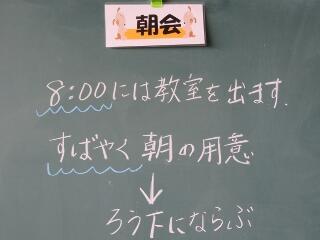 朝会
8:00には教室を出ます.
すばやく朝の用意
↓
ろう下にならぶ